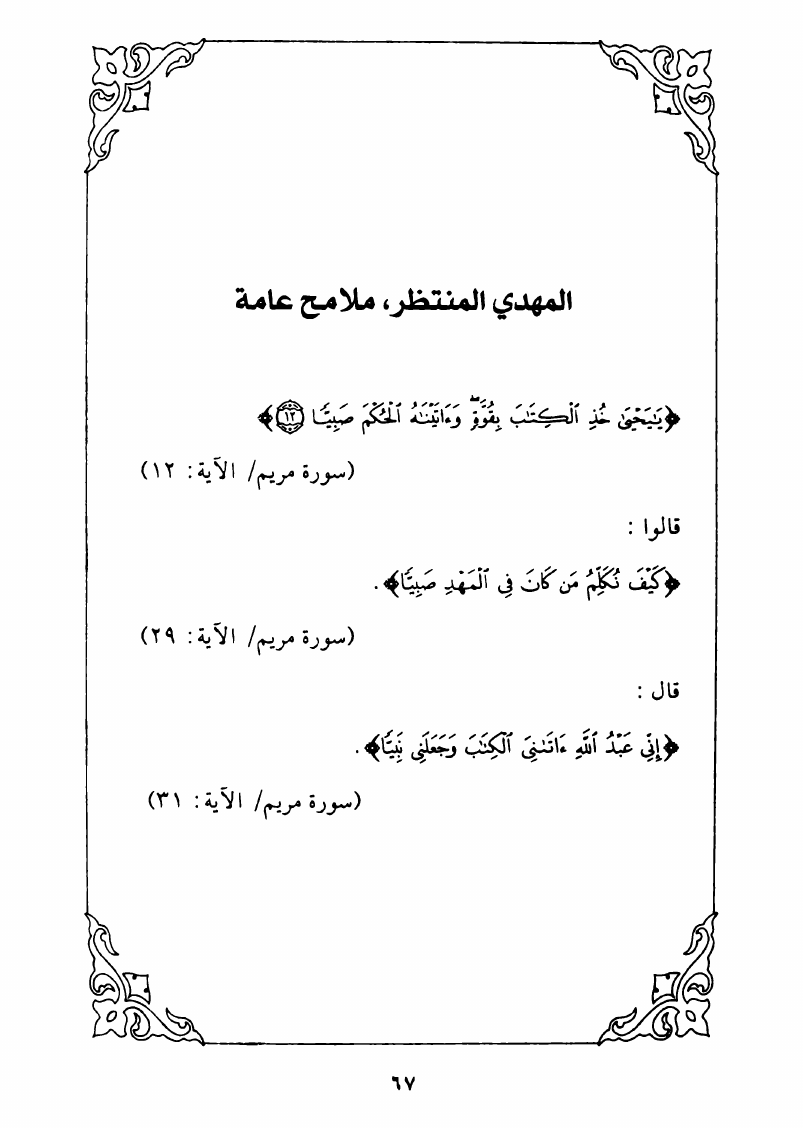 المهدي المنتظر، ملامح عامة
﴿يَٰيَحْيَىٰ خُذِ ٱلْكِتَٰبَ بِقُوَّةٖۖ وَءَاتَيْنَٰهُ ٱلْحُكْمَ صَبِيّٗا ١٢﴾
(سورة مريم/ الآية: ١٢)
قالوا :
﴿كَيْفَ نُكَلِّمُ مَن كَانَ فِي ٱلْمَهْدِ صَبِيّٗا﴾ .
(سورة مريم/ الآية: ٢٩)
قال :
﴿إِنِّي عَبْدُ ٱللَّهِ ءَاتَىٰنِيَ ٱلْكِتَٰبَ وَجَعَلَنِي نَبِيّٗا﴾ .
(سورة مريم/ الآية: ٣١)
٦٧